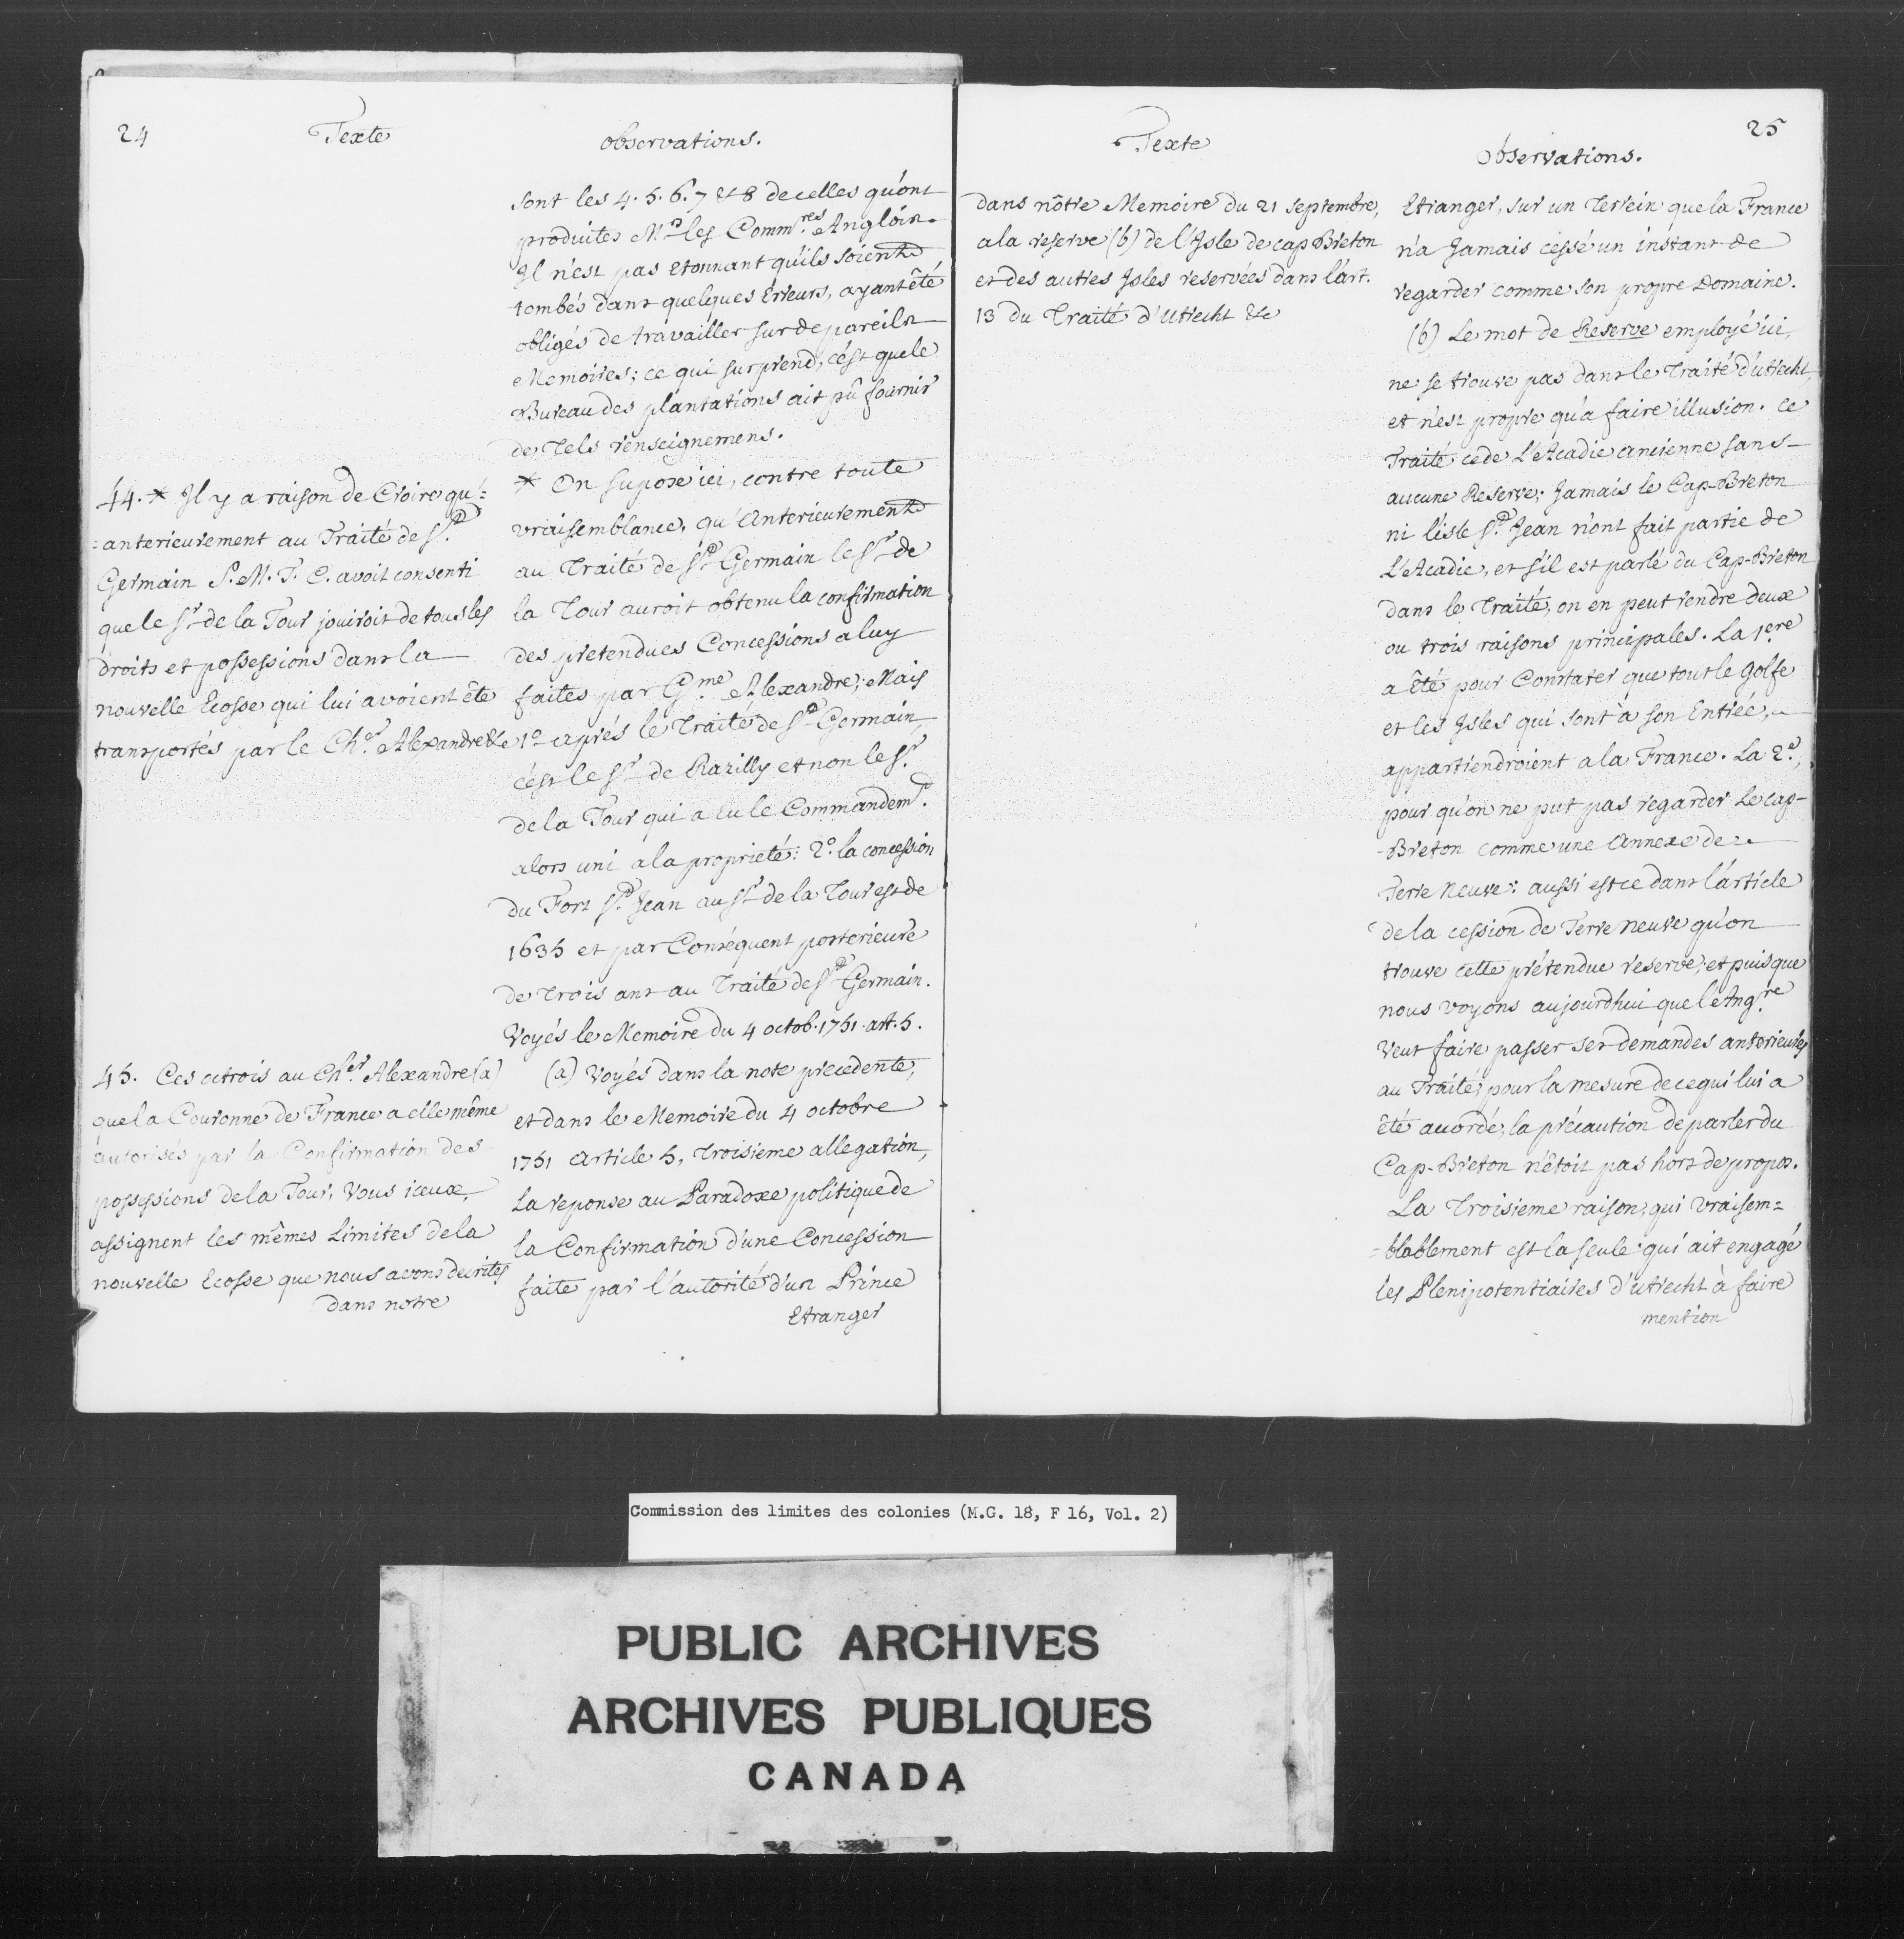 24
Texte
observations.
sont les 4. 5. 6. 7 & 8 de celles qu'ont
produites Mrs les Commres Anglois.
Il n'est pas Etonnant qu'ils soient
tombés dans quelques Erreurs, ayant êté
obligés de travailler sur de pareils
Memoires; ce qui surprend, c'ést que le
Bureau des plantations ait pû fournir
de Tels renseignemens.
44. * Il y a raison de Croire qu'=
=anterieurement au Traité de St.
Germain S. M. T. C. avoit consenti
que le Sr de la Tour jouiroit de tous les
droits et possessions dans la
nouvelle Ecosse qui lui avoient êté
transportés par le Cher Alexandre &c
* On supose ici, contre toute
vraisemblance, qu'Anterieurement
au Traité de St Germain le Sr de
la Tour auroit obtenu la confirmation
des pretendues Concessions a luy
faites par Gme Alexandre; Mais
1o aprés le Traité de St Germain,
c'ést le Sr de Razilly et non le Sr.
de la Tour qui a Eu le Commandemt.
alors uni a la proprieté: 2o. la concession
du Fort St Jean au Sr de la Tour est de
1635 et par Conséquent posterieure
de Trois ans au Traité de St Germain.
Voyés le Memoire du 4 octob. 1751. art. 5.
45. Ces octrois au Cher Alexandre (a)
que la Couronne de France a elle même
autorisés par la Confirmation des
possessions de la Tour, Vous iceux,
assignent les mêmes Limites de la
nouvelle Ecosse que nous avons decrites
dans notre
(a) Voyés dans la note precedente,
et dans le Memoire du 4 octobre
1751 Article 5, Troisieme allegation,
La reponse au Paradoxe politique de
la Confirmation d'une Concession
faite par l'autorité d'un Prince
Etranger
25
Texte
Observations.
dans nôtre Memoire du 21 Septembre,
a la reserve (b) de l'Isle de cap Breton
et des autres Isles reservées dans l'art.
13 du Traité d'Utrecht &c
Etranger, sur un Terrein que la France
n'a Jamais cessé un instant de
regarder comme son propre Domaine.
(b) Le mot de Reserve employé ici,
ne se trouve pas dans le Traité d'utrecht,
et n'est propre qu'a faire illusion. Ce
Traité cede L'Acadie ancienne sans
aucune Reserve; Jamais le Cap-Breton
ni l'isle St Jean n'ont fait partie de
L'Acadie, et s'il est parlé du Cap-Breton
dans le Traité, on en peut rendre deux
ou trois raisons principales. La 1ere
a êté pour Constater que tout le Golfe
et les Isles qui sont à son Entrée,
appartiendroient a la France. La 2e,
pour qu'on ne put pas regarder Le cap-
-Breton comme une Annexe de
Terre Neuve: aussi est ce dans l'article
de la cession de Terre neuve qu'on
trouve cette prétendue reserve; et puisque
nous voyons aujourdhui que l'Angre
Veut faire passer ses demandes anterieures
au Traité, pour la mesure de ce qui lui a
êté accordé, la précaution de parler du
Cap-Breton n'êtoit pas hors de propos.
La Troisieme raison, qui vraisem=
=blablement est la seule qui ait engagé
les Plenipotentiaires d'utrecht à faire
mention
Commission des limites des colonies (M.G. 18, F 16, Vol. 2)
PUBLIC ARCHIVES
ARCHIVES PUBLIQUES
CANADA